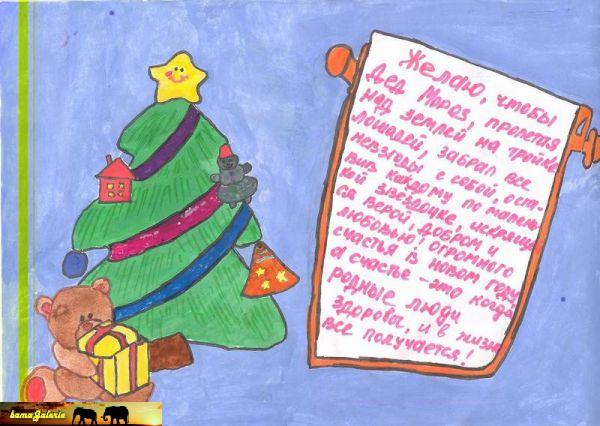 Желаю, чтобы
Дед Мороз, пролетая
над землей на тройке
лошадей, забрал все
невзгоды с собой, оста-
вив каждому по малень-
кой звездочке, искрящей-
ся верой, добром и
любовью! огромного
счастья в новом году,
а счастье - это когда
родные люди
здоровы, и в жизни
все получается!
bamaGalerie